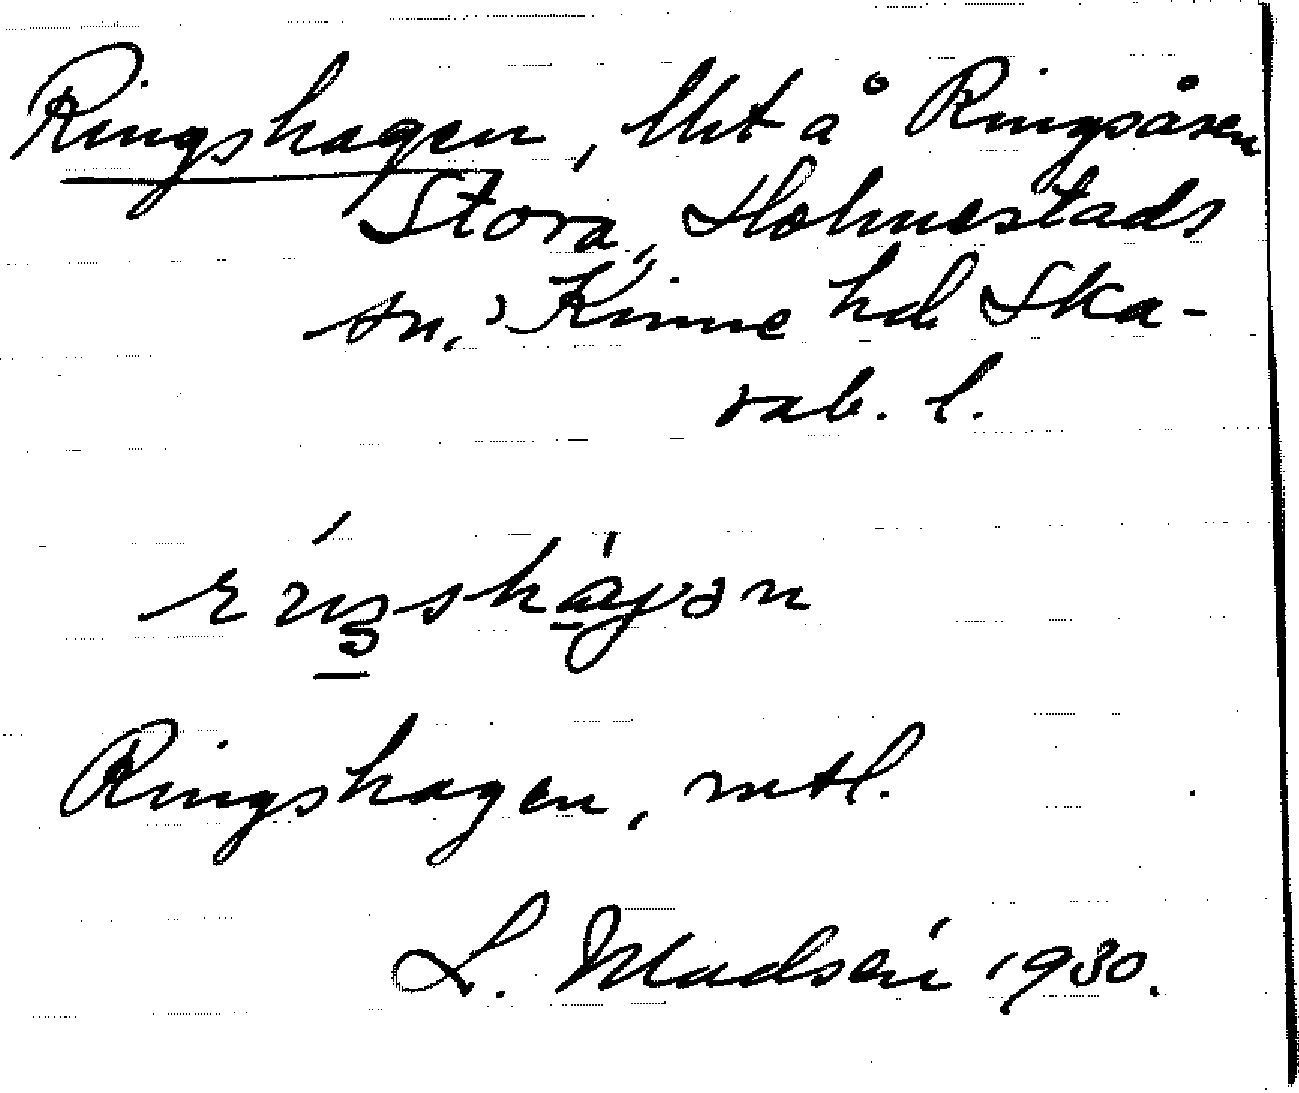 Ringshagen, lht å Ringsåsen
Stora, Holmestads
sn, Kinne hd Ska-
rab. l.
Ringshagen, mtl.
L. Madsén 1930.